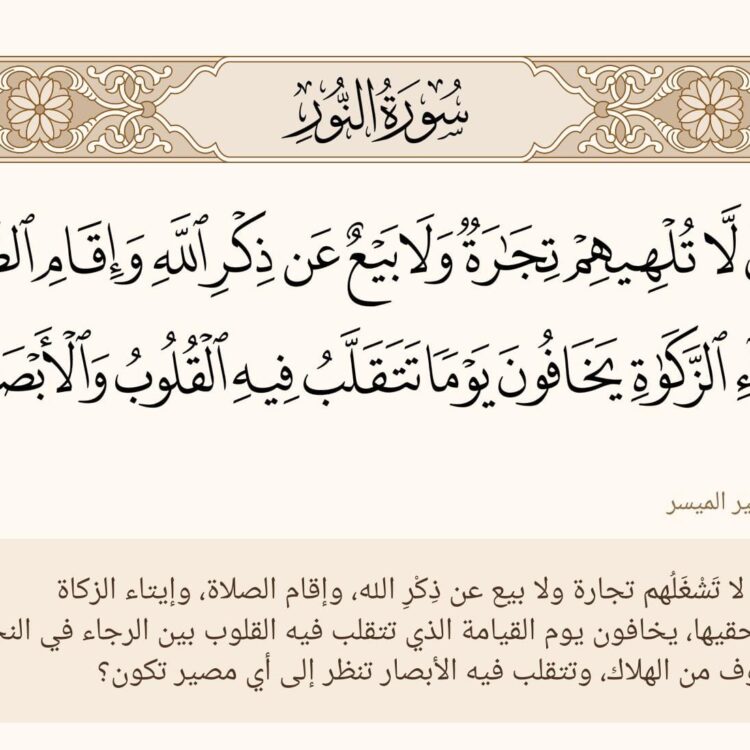 سُورَةُ النُّورِ
لَّا تُلْهِيهِمْ تِجَٰرَةٌ وَلَا بَيْعٌ عَن ذِكْرِ ٱللَّهِ وَإِقَامِ
ٱلزَّكَوٰةِ يَخَافُونَ يَوْمًا تَتَقَلَّبُ فِيهِ ٱلْقُلُوبُ وَٱلْأَبْصَ
ير الميسر
لا تَشْغَلُهم تجارة ولا بيع عن ذِكْرِ الله، وإقام الصلاة، وإيتاء الزكاة
حقيها، يخافون يوم القيامة الذي تتقلب فيه القلوب بين الرجاء في النج
وف من الهلاك، وتتقلب فيه الأبصار تنظر إلى أي مصير تكون؟